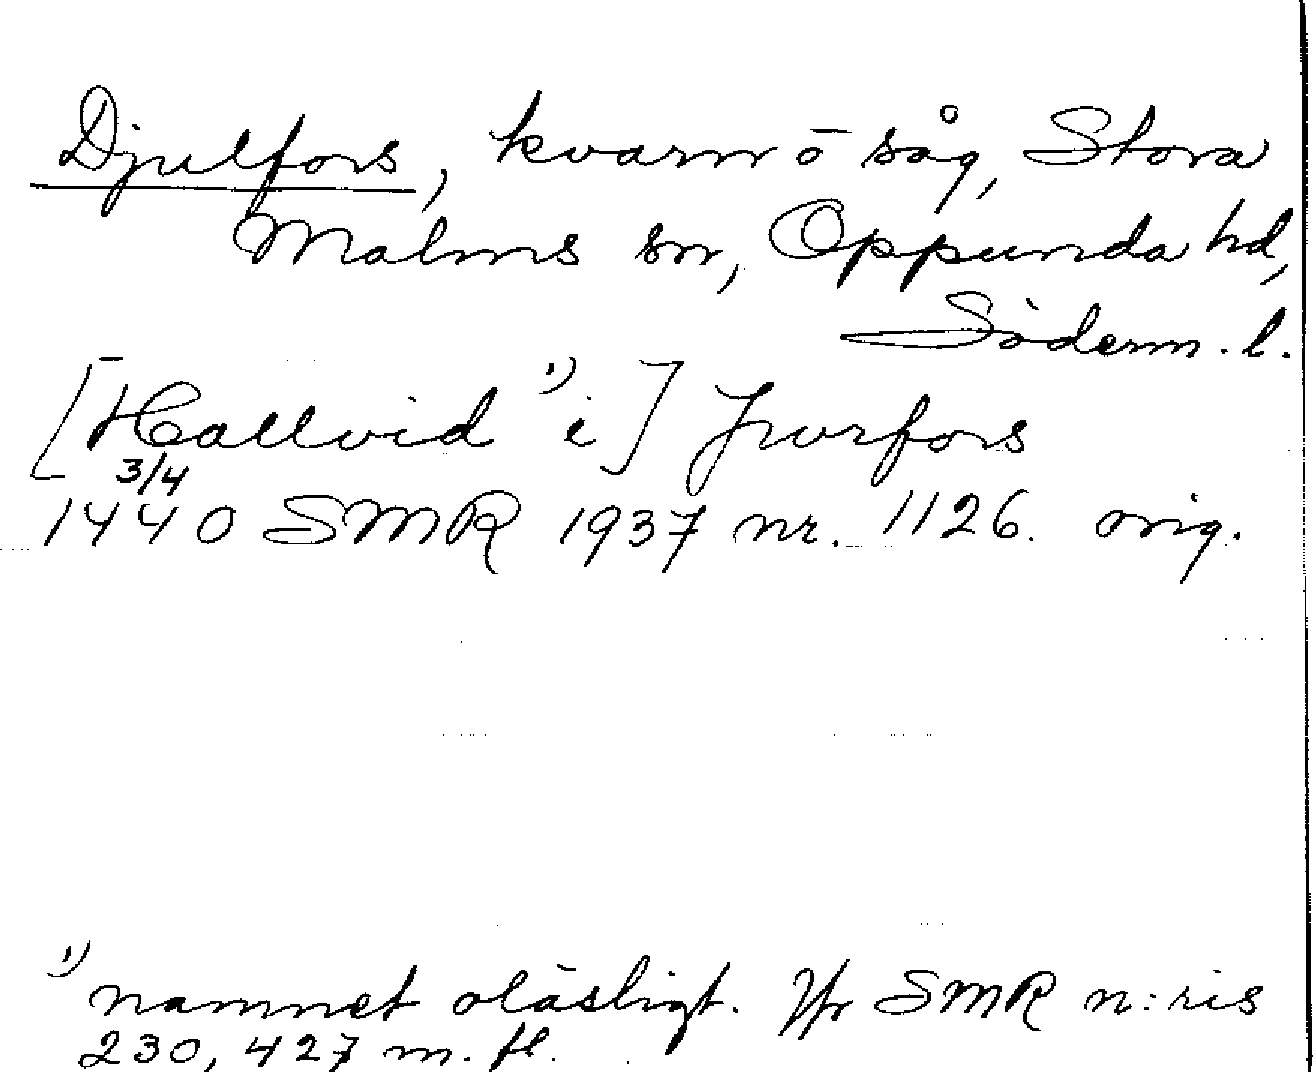 Djulfors, kvarn o såg, Stora
Malms sn, Oppunda hd,
Söderm. l.
[Hallvid 1) i] Jwrfors
3/4
1440 SMR 1937 nr. 1126. orig.
1) namnet oläsligt. Jfr SMR n:ris
230, 427 m. fl.